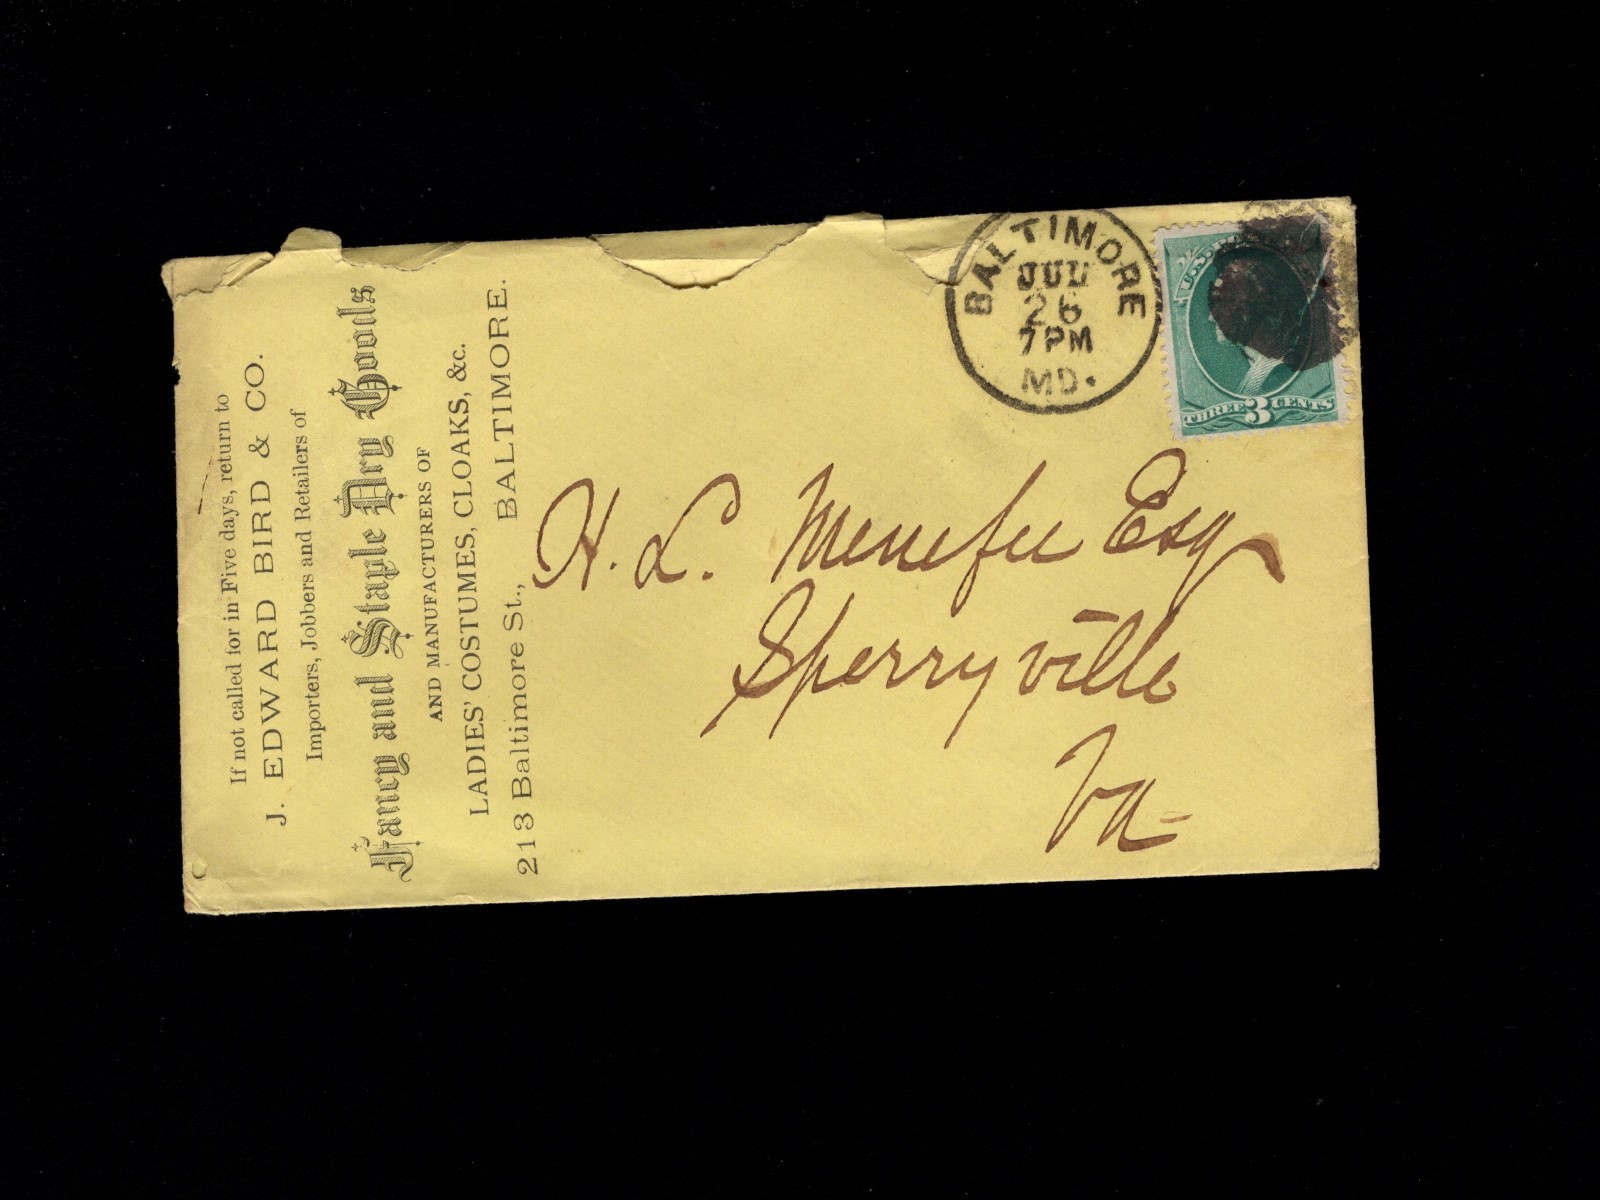 If not called for in Five days, return to
J. EDWARD BIRD & CO.
Importers, Jobbers and Retailers of
Fancy and Staple Dry Goods
AND MANUFACTURERS OF
LADIES' COSTUMES, CLOAKS, &c.
213 Baltimore St., BALTIMORE.
BALTIMORE
JUL
26
7PM
MD.
U.S. PO
THREE 3 CENTS
H. L. Menefee Esq
Sperryville
Va